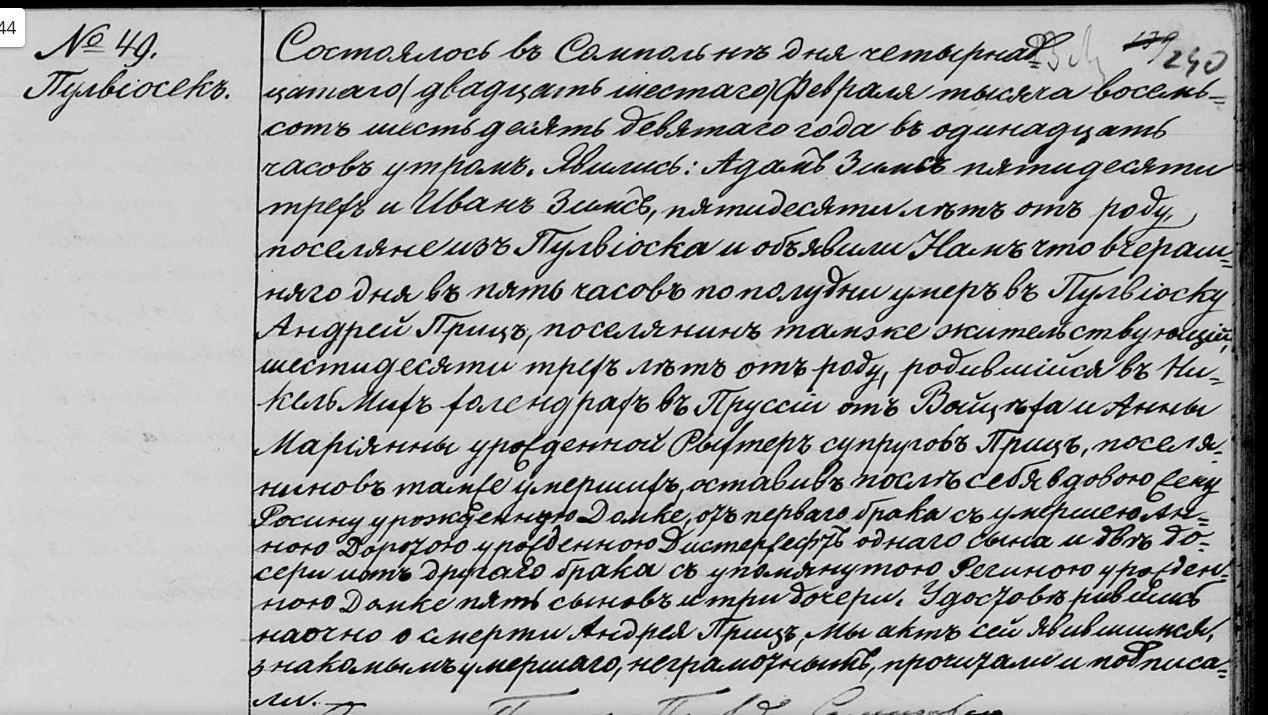 44
№ 49.
Пулвіосекъ.
240
Состоялось въ Сомпольнѣ дня четырнад=
цатаго/двадцать шестаго/Февраля тысяча восемь=
сотъ шестьдесять девятаго года въ одинадцать
часовъ утромъ. Явились: Адамъ Зимсъ пятидесяти
трехъ и Иванъ Зимсъ, пятидесяти лѣтъ отъ роду,
поселяне изъ Пулвіоска и объявили Намъ что вчераш=
няго дня въ пять часовъ по полудни умеръ въ Пулвіоску
Андрей Прицъ, поселянинъ тамже жительствующій,
шестидесяти трехъ лѣтъ отъ роду, родившійся въ Ни=
кельмихъ голендрахъ въ Пруссіи отъ Войцѣха и Анны
Маріянны урожденной Рыхтеръ супруговъ Прицъ, поселя=
ниновъ тамже умершихъ, оставивъ послѣ себя вдовою
Росину урожденную Домке, отъ перваго брака съ умершею Ан=
ною Доротою урожденною однаго сына и двѣ до=
чери и отъ другаго брака съ упомянутою Региною урожден=
ною Домке пять сыновъ и три дочери. Удостовѣрившись
наочно о смерти Андрея Прицъ, Мы актъ сей явившимся,
знакомымъ умершаго, неграмотнымъ, прочитали и подписа=
ли.